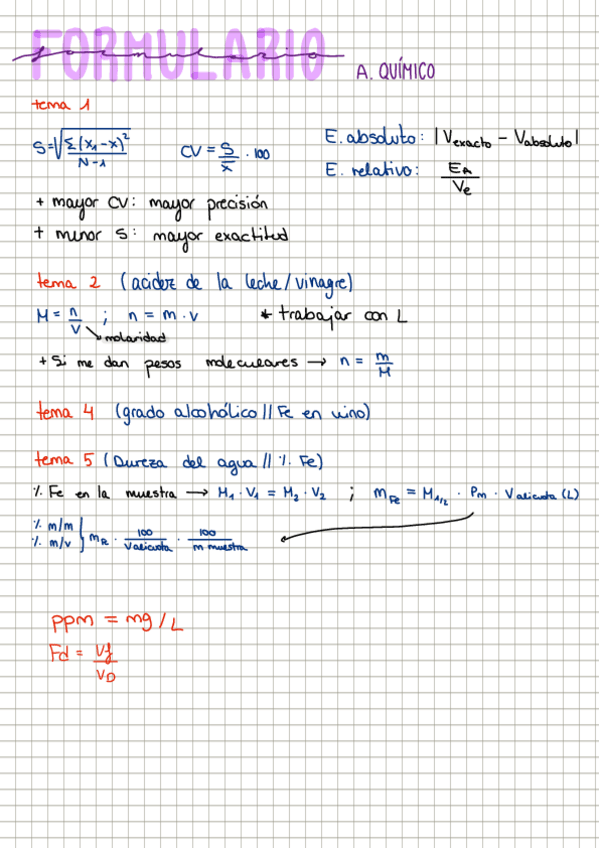 FORMULARIO
formulario
A. QUÍMICO
tema 1
S = √(Σ(x₁-x)²/N-1)
CV = S/x̄ · 100
E. absoluto: |Vexacto - Vabsoluto|
E. relativo: EA/Ve
+ mayor CV: mayor precisión
+ menor S: mayor exactitud
tema 2 (acidez de la leche/vinagre)
M = n/V ; n = m · v * trabajar con L
molaridad
+ Si me dan pesos moleculares → n = m/M
tema 4 (grado alcohólico // Fe en vino)
tema 5 (Dureza del agua // % Fe)
% Fe en la muestra → M₁ · V₁ = M₂ · V₂ ; mFe = M1/2 · Pm · Valicuota (L)
% m/m
% m/v } mFe · 100/Valicuota · 100/m muestra
ppm = mg/L
Fd = Vf/VD